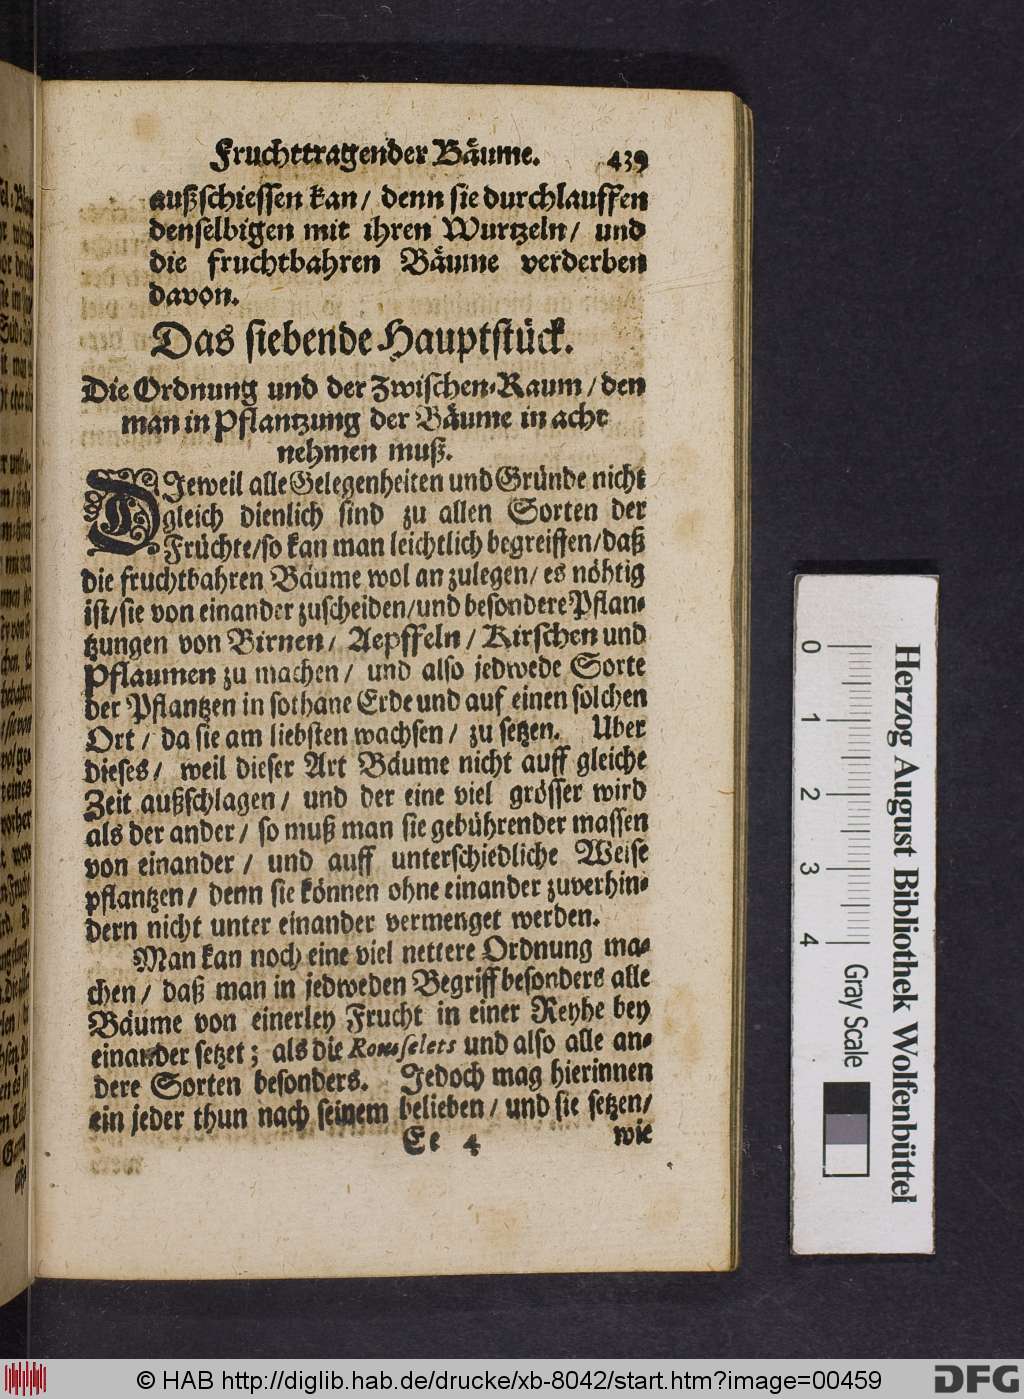 Fruchttragender Bäume. 439
außschiessen kan / denn sie durchlauffen
denselbigen mit ihren Wurtzeln / und
die fruchtbahren Bäume verderben
davon.
Das siebende Hauptstück.
Die Ordnung und der Zwischen-Raum / den
man in Pflantzung der Bäume in acht
nehmen muß.
DIeweil alle Gelegenheiten und Gründe nicht
gleich dienlich sind zu allen Sorten der
Früchte / so kan man leichtlich begreiffen / daß
die fruchtbahren Bäume wol an zulegen / es nöhtig
ist / sie von einander zuscheiden / und besondere Pflan-
tzungen von Birnen / Aepffeln / Kirschen und
Pflaumen zu machen / und also jedwede Sorte
der Pflantzen in sothane Erde und auf einen solchen
Ort / da sie am liebsten wachsen / zu setzen. Uber
dieses / weil dieser Art Bäume nicht auff gleiche
Zeit außschlagen / und der eine viel grösser wird
als der ander / so muß man sie gebührender massen
von einander / und auff unterschiedliche Weise
pflantzen / denn sie können ohne einander zuverhin-
dern nicht unter einander vermenget werden.
Man kan noch eine viel nettere Ordnung ma-
chen / daß man in jedweden Begriff besonders alle
Bäume von einerley Frucht in einer Reyhe bey
einander setzet ; als die Rousselets und also alle an-
dere Sorten besonders. Jedoch mag hierinnen
ein jeder thun nach seinem belieben / und sie setzen /
Ee 4 wie
0 1 2 3 4
Gray Scale
Herzog August Bibliothek Wolfenbüttel
© HAB http://diglib.hab.de/drucke/xb-8042/start.htm?image=00459
DFG